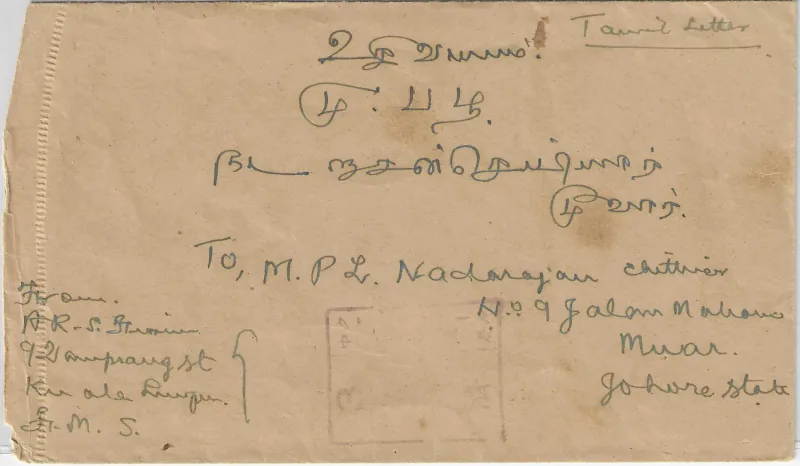 Tamil Letter
உ சிவமயம்.
மு. ப ழ.
நடராசன் செட்டியார்
மூவார்.
To, M. P L. Nadarajan chittiar
No 9 Jalan
Muar.
Johore State
From.
A R-S.
92 Ampang st
Kuala Lumpur.
F. M. S.